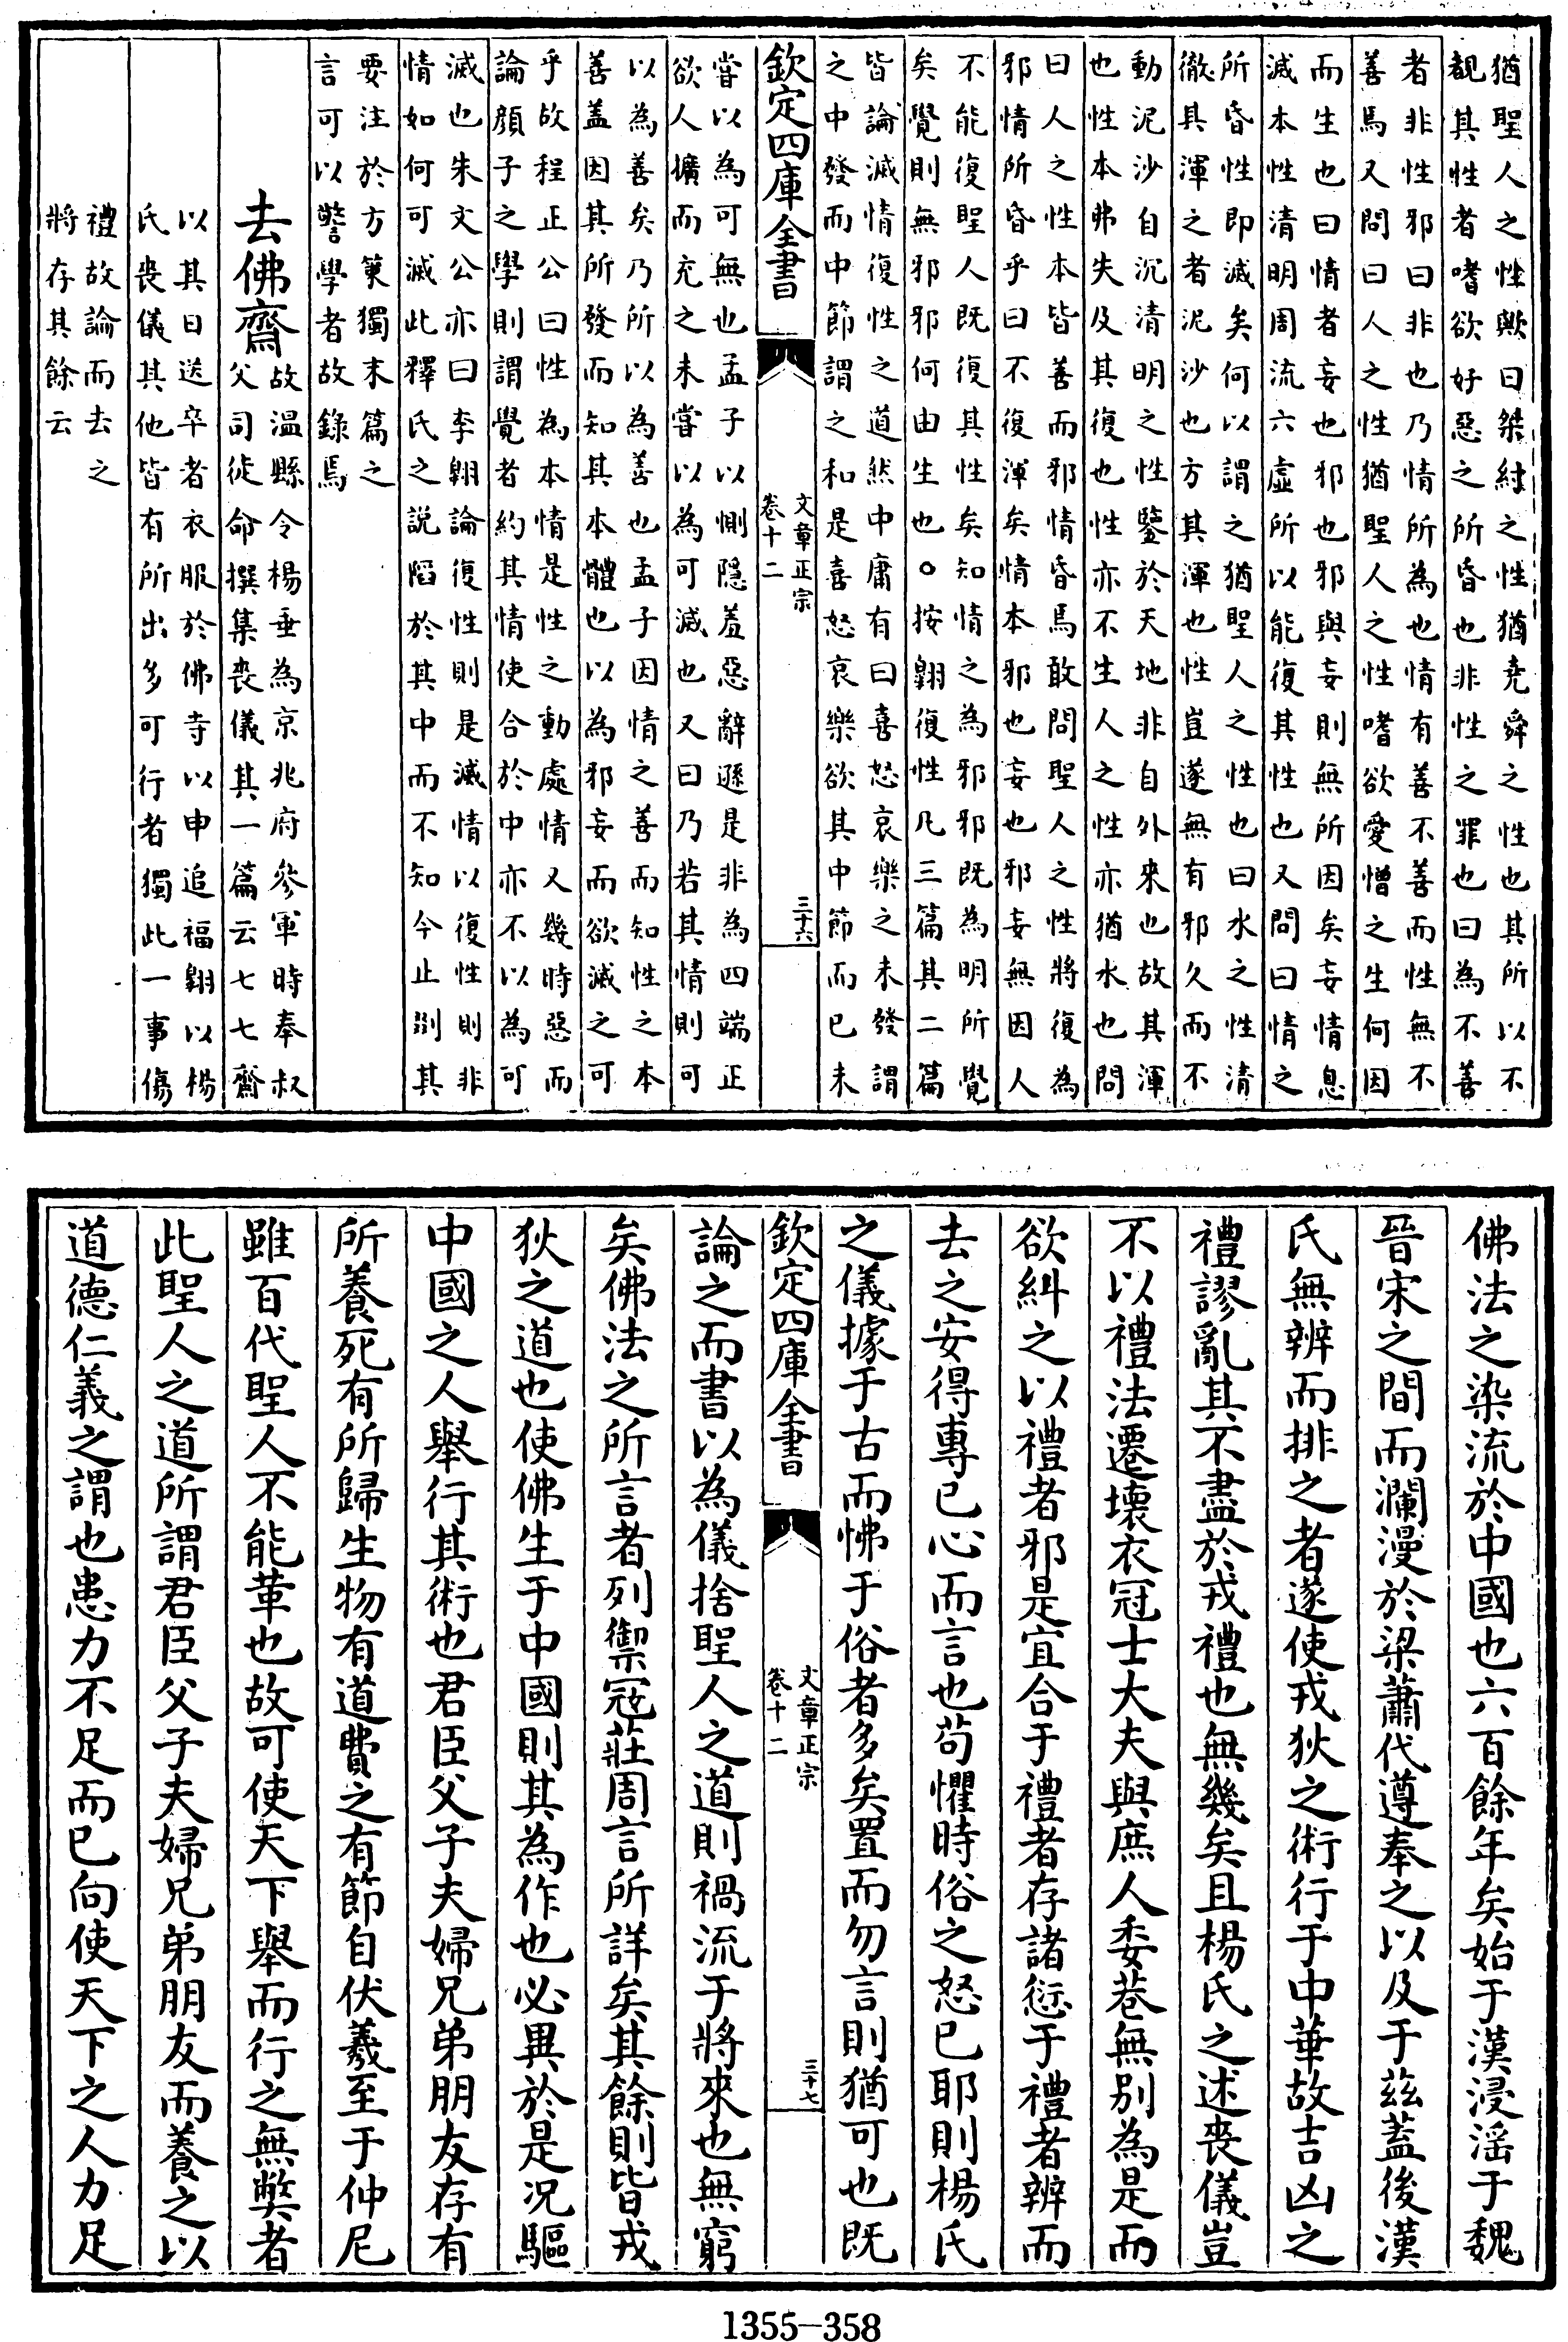 猶聖人之性歟曰桀紂之性猶堯舜之性也其所以不
覩其性者嗜欲好惡之所昏也非性之罪也曰為不善
者非性邪曰非也乃情所為也情有善不善而性無不
善焉又問曰人之性猶聖人之性嗜欲愛憎之生何因
而生也曰情者妄也邪也邪與妄則無所因矣妄情息
滅本性清明周流六虛所以能復其性也又問曰情之
所昏性即滅矣何以謂之猶聖人之性也曰水之性清
徹其渾之者泥沙也方其渾也性豈遂無有邪久而不
動泥沙自沉清明之性鑒於天地非自外來也故其渾
也性本弗失及其復也性亦不生人之性亦猶水也問
曰人之性本皆善而邪情昏焉敢問聖人之性將復為
邪情所昏乎曰不復渾矣情本邪也妄也邪妄無因人
不能復聖人既復其性矣知情之為邪邪既為明所覺
矣覺則無邪邪何由生也○按翺復性凡三篇其二篇
皆論滅情復性之道然中庸有曰喜怒哀樂之未發謂
之中發而中節謂之和是喜怒哀樂欲其中節而已未
欽定四庫全書
文章正宗
卷十二
三十六
嘗以為可無也孟子以惻隠羞惡辭遜是非為四端正
欲人擴而充之未嘗以為可滅也又曰乃若其情則可
以為善矣乃所以為善也孟子因情之善而知性之本
善蓋因其所發而知其本體也以為邪妄而欲滅之可
乎故程正公曰性為本情是性之動處情又幾時惡而
論顔子之學則謂覺者約其情使合於中亦不以為可
滅也朱文公亦曰李翺論復性則是滅情以復性則非
情如何可滅此釋氏之說䧟於其中而不知今止剟其
要注於方䇿獨末篇之
言可以警學者故錄焉
去佛齋
故溫縣令楊垂為京兆府參軍時奉叔
父司徒命撰集喪儀其一篇云七七齋
以其日送卒者衣服於佛寺以申追福翺以楊
氏喪儀其他皆有所出多可行者獨此一事傷
禮故論而去之
將存其餘云
佛法之染流於中國也六百餘年矣始于漢浸淫于魏
晉宋之間而瀾漫於梁蕭代遵奉之以及于茲蓋後漢
氏無辨而排之者遂使戎狄之術行于中華故吉凶之
禮謬亂其不盡於戎禮也無幾矣且楊氏之述喪儀豈
不以禮法遷壞衣冠士大夫與庶人委巷無別為是而
欲糾之以禮者邪是宜合于禮者存諸愆于禮者辨而
去之安得專已心而言也茍懼時俗之怒已耶則楊氏
之儀據于古而怫于俗者多矣置而勿言則猶可也既
欽定四庫全書
文章正宗
卷十二
三十七
論之而書以為儀捨聖人之道則禍流于將來也無窮
矣佛法之所言者列禦冦莊周言所詳矣其餘則皆戎
狄之道也使佛生于中國則其為作也必異於是况驅
中國之人舉行其術也君臣父子夫婦兄弟朋友存有
所養死有所歸生物有道費之有節自伏羲至于仲尼
雖百代聖人不能革也故可使天下舉而行之無弊者
此聖人之道所謂君臣父子夫婦兄弟朋友而養之以
道德仁義之謂也患力不足而已向使天下之人力足
1355-358